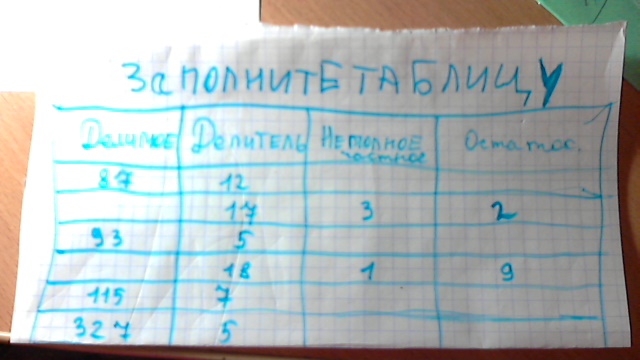 ЗаПОЛНИТЕ ТАБЛИЦУ
Делимое Делитель Неполное частное Остаток
87 12
17 3 2
93 5
18 1 9
115 7
327 5